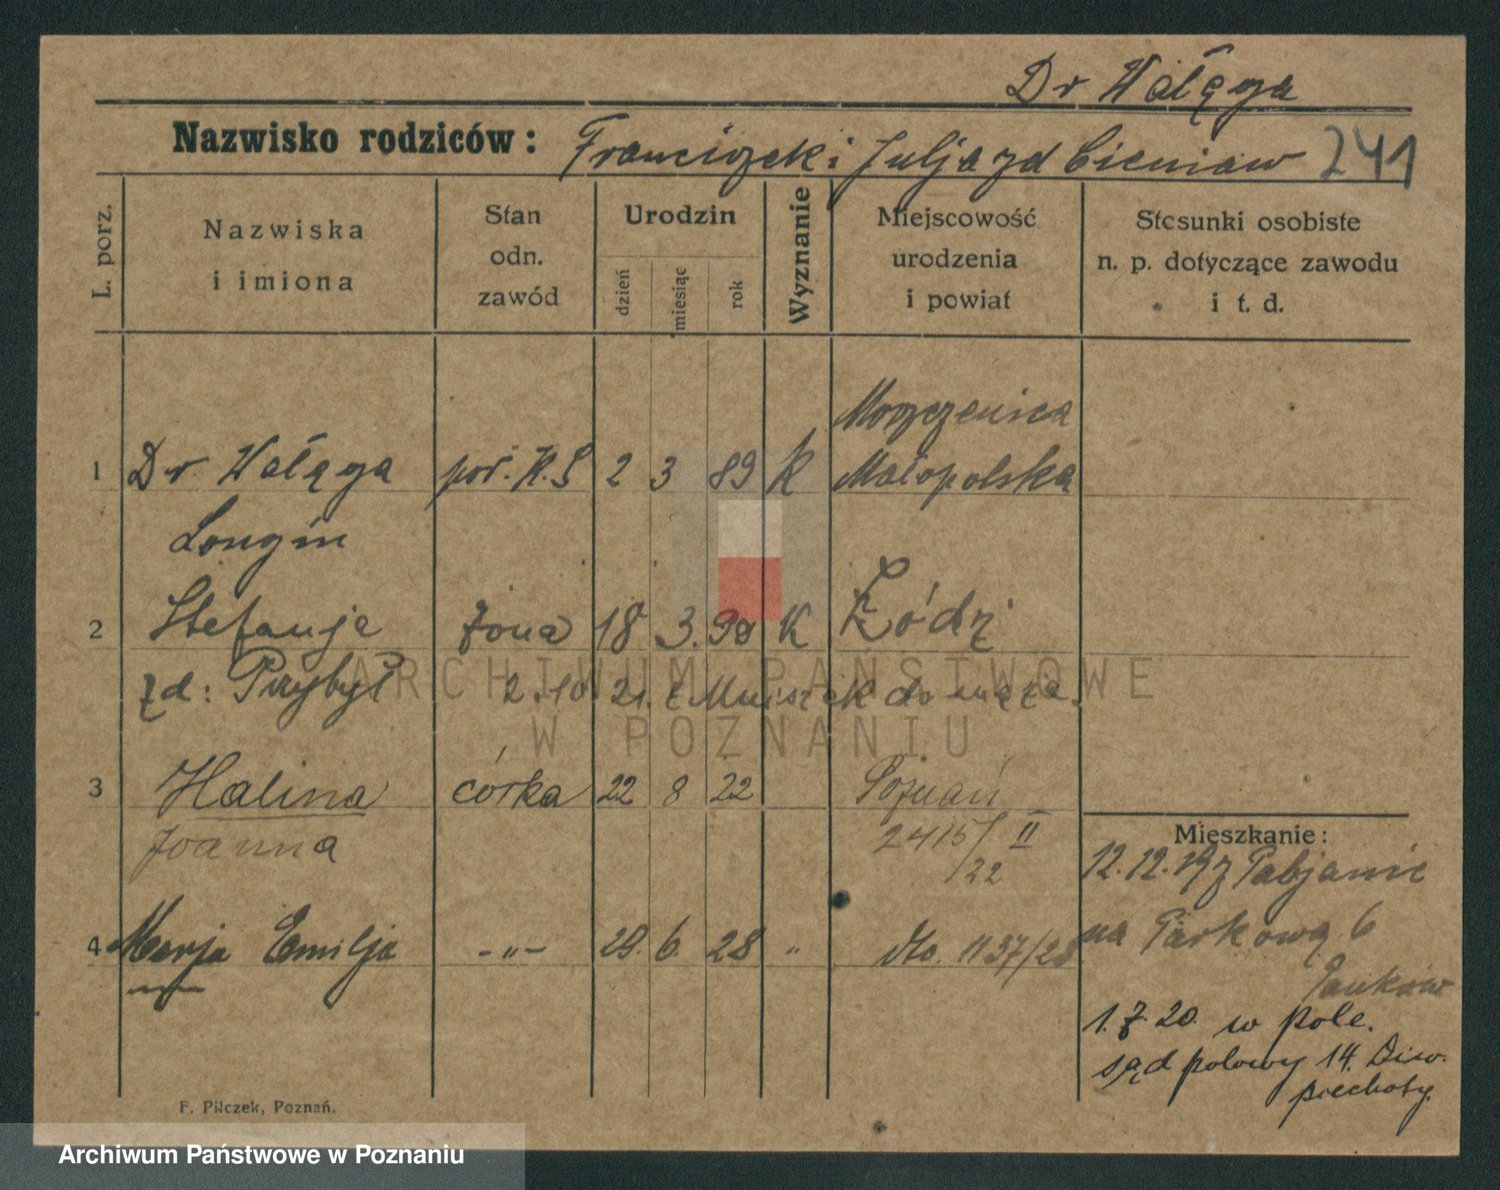 Dr Wałęga
Nazwisko rodziców: Franciszek i Julja zd Cieniaw 241
L. porz.
Nazwiska i imiona
Stan odn. zawód
Urodzin
dzień miesiąc rok
Wyznanie
Miejscowość urodzenia i powiat
Stosunki osobiste n. p. dotyczące zawodu i t. d.
1 Dr. Wałęga por. K.S 2 3 89 K Moszczenica Małopolska
Longin
2 Stefanja żona 18 3. 98 K Łódź
zd: Przybył 2.10.21. z Mniszek do męża.
3 Halina córka 22 8 22 Poznań
Joanna 2415/II
/22
4 Marja Emilja -„- 29. 6. 28 „ dto. 1137/28
Mieszkanie:
12.12.19 z Pabjanic
na Parkową 6
1.7.20. w pole.
sąd polowy 14. Diw.
piechoty.
F. Pilczek, Poznań.
ARCHIWUM PAŃSTWOWE
W POZNANIU
Archiwum Państwowe w Poznaniu